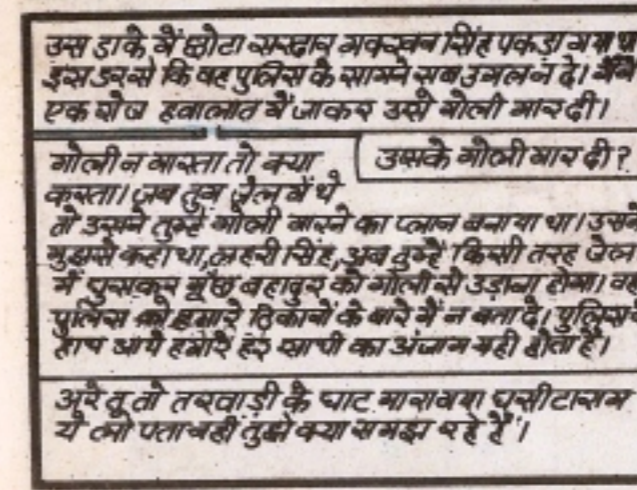 उस डाके में छोटा सरदार मक्खन सिंह पकड़ा गया था
इस डर से कि वह पुलिस के सामने सब उगल न दे। मैंने
एक रोज हवालात में जाकर उसे गोली मार दी।
गोली न मारता तो क्या
उसके गोली मार दी?
करता। जब तुम जेल में थे
तो उसने तुम्हें गोली मारने का प्लान बनाया था। उसने
मुझसे कहा था, लहरी सिंह, अब तुम्हें किसी तरह जेल
में घुसकर मूंछ बहादुर को गोली से उड़ाना होगा। वह
पुलिस को हमारे ठिकानों के बारे में न बतादे। पुलिस
हाथ आये हमारे हर साथी का अंजाम यही होता है।
अरे तू तो तरवाड़ी के घाट मारा गया घसीटाराम
ये तो पता नहीं तुझे क्या समझ रहे हैं।